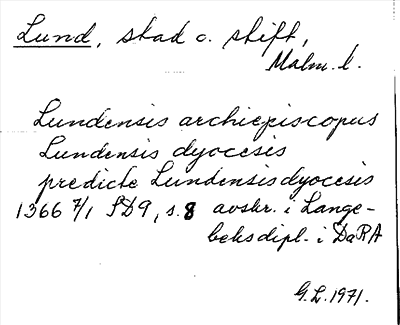 Lund, stad o. stift,
Malm. l.
Lundensis archiepiscopus
Lundensis dyocesis
predicte Lundensis dyocesis
1366 7/1 SD9, s. 8 avskr. i Lange-
beks dipl. i DaRA
G.L. 1971.